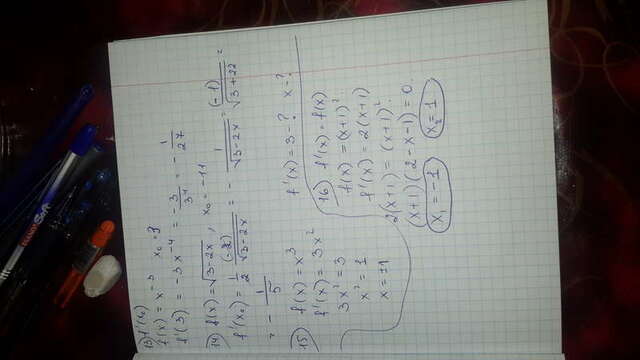 13) f'(x₀)
f(x) = x⁻³  x₀ = 3
f'(3) = -3x⁻⁴ = -3/3⁴ = -1/27
14) f(x) = √(3-2x), x₀ = -11
f'(x₀) = 1/2 (-2)/√(3-2x) = - 1/√(3-2x) = (-1)/√(3+22) =
= - 1/5
15) f(x) = x³  f'(x) = 3 - ?  x - ?
f'(x) = 3x²
3x² = 3
x² = 1
x = ±1
16) f'(x) = f(x)
f(x) = (x+1)².
f'(x) = 2(x+1)
2(x+1) = (x+1)².
(x+1)(2-x-1) = 0.
x₁ = -1  x₂ = 1